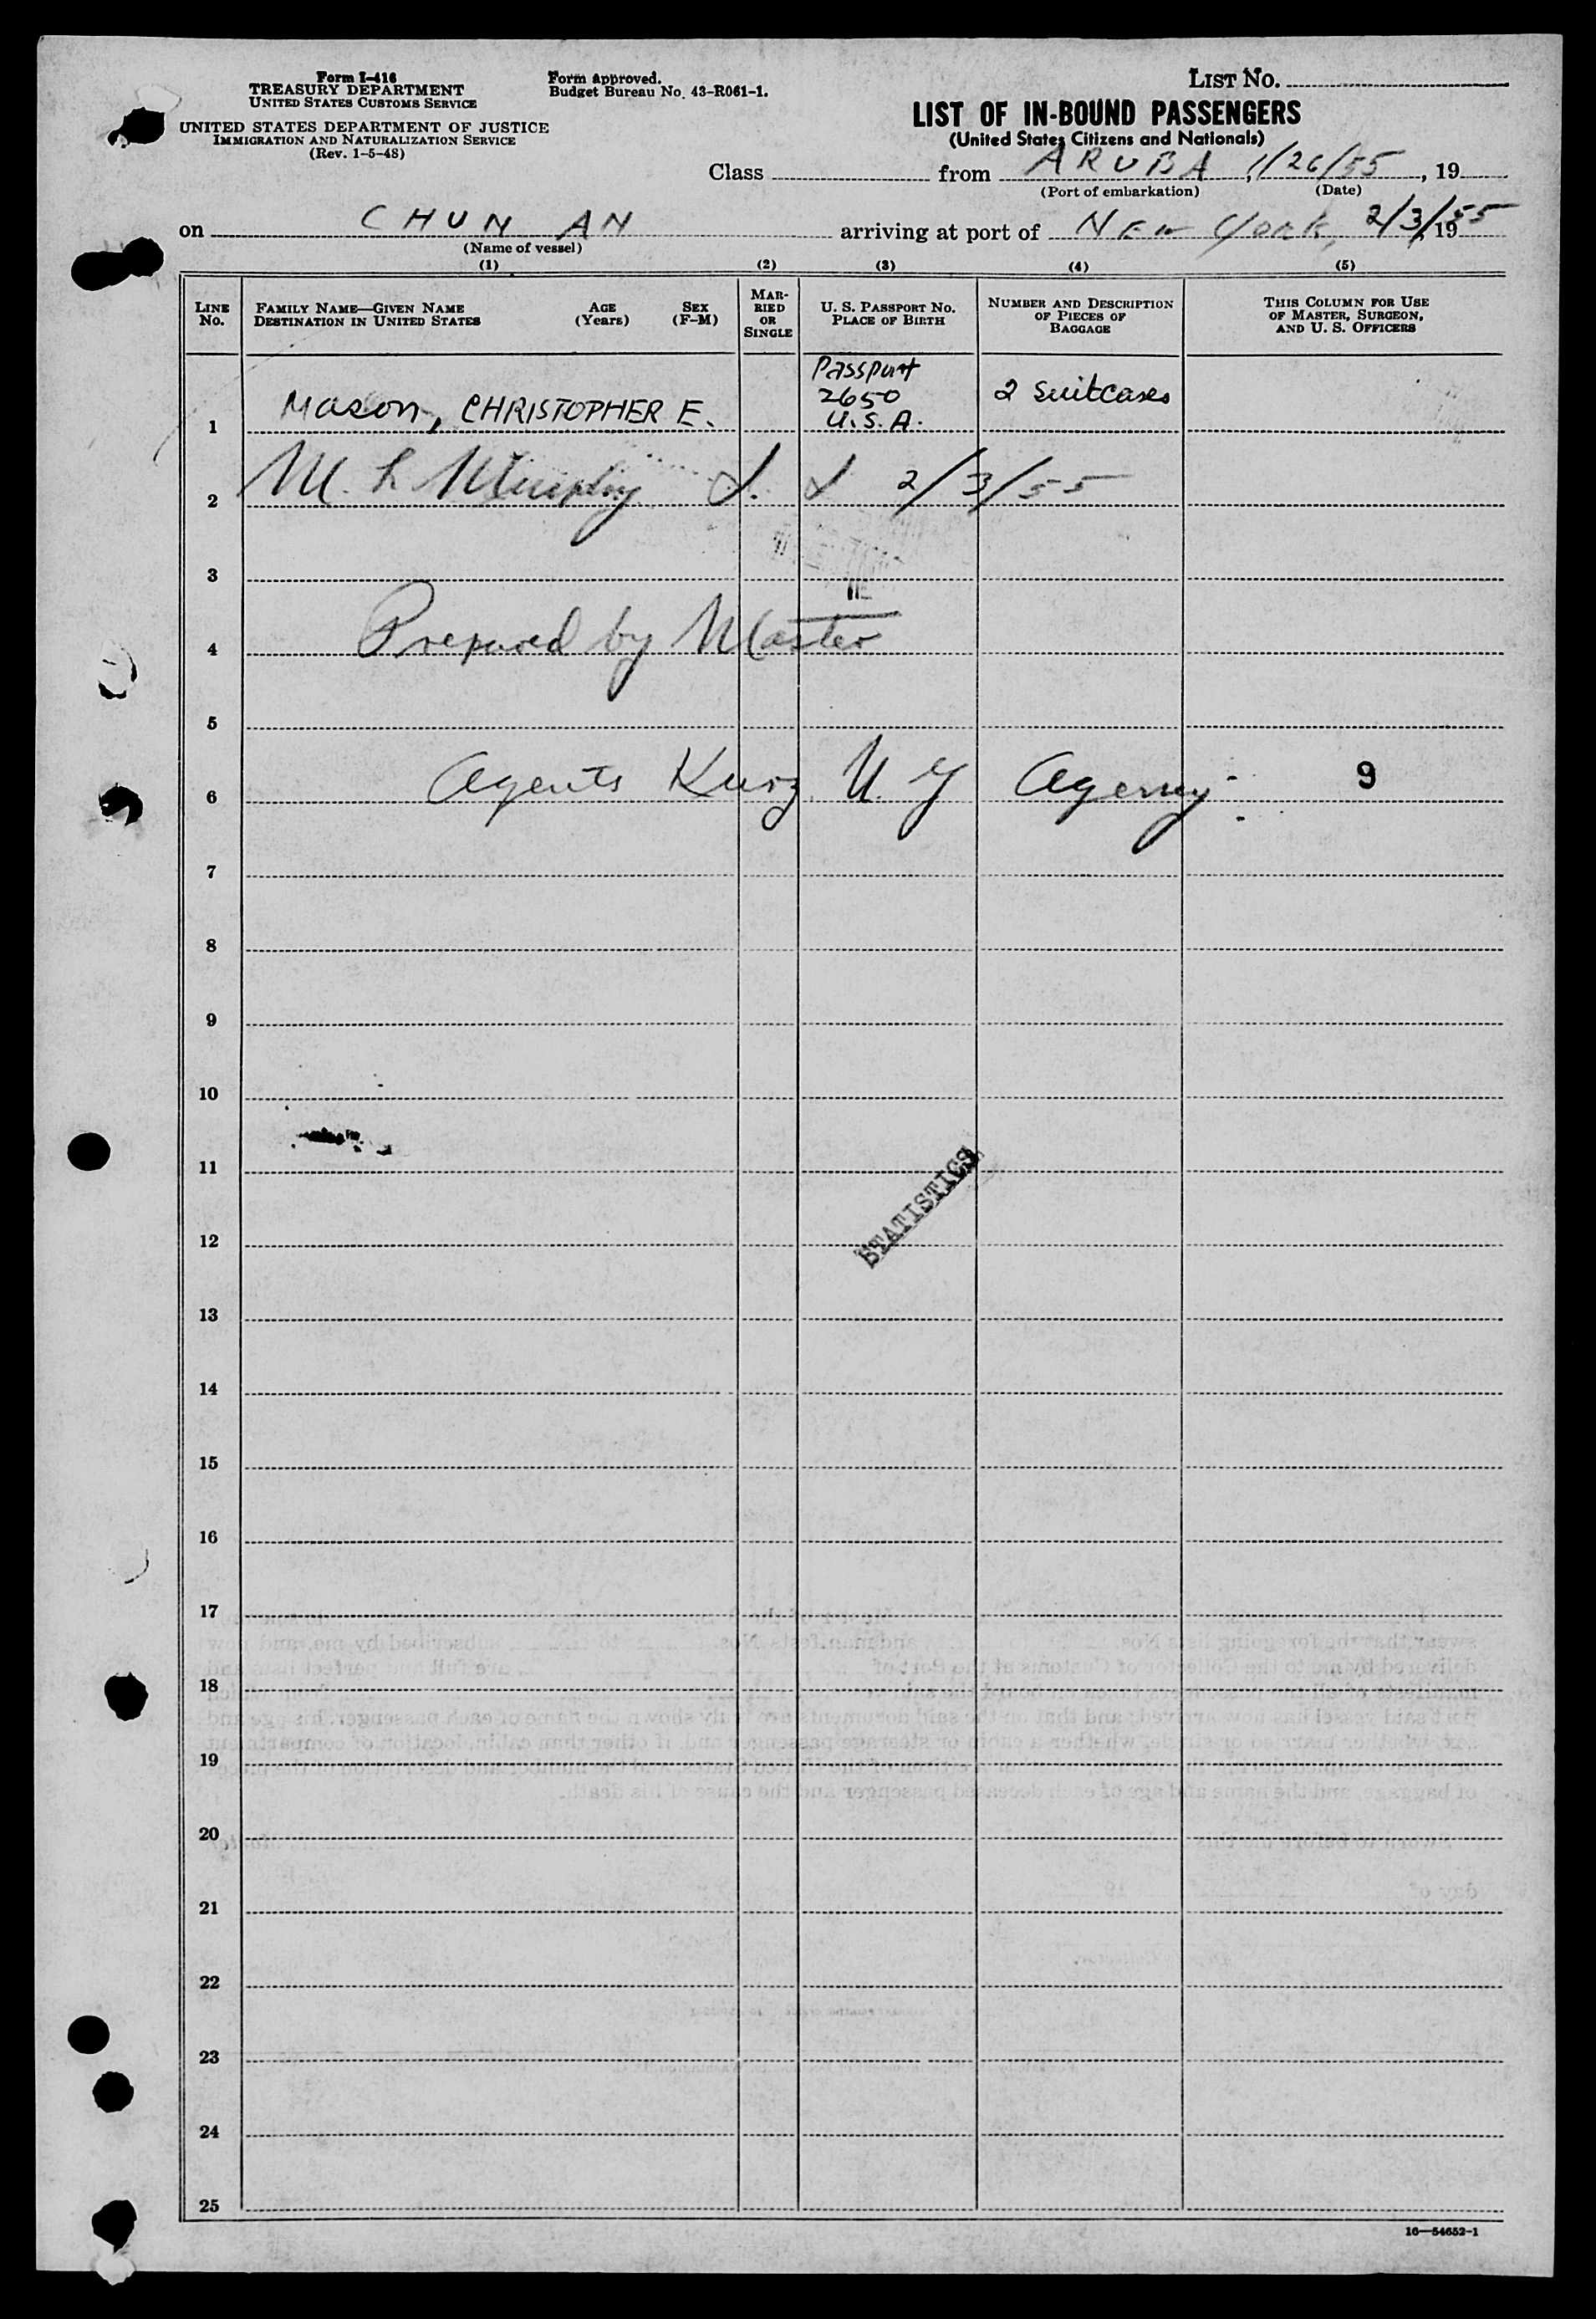 Form I-416
TREASURY DEPARTMENT
UNITED STATES CUSTOMS SERVICE
UNITED STATES DEPARTMENT OF JUSTICE
IMMIGRATION AND NATURALIZATION SERVICE
(Rev. 1-5-48)
Form approved.
Budget Bureau No. 43-R061-1.
LIST NO.
LIST OF IN-BOUND PASSENGERS
(United States Citizens and Nationals)
Class from ARUBA, 1/26/55, 19
(Port of embarkation) (Date)
on CHUN AN arriving at port of NEW York, 2/3/, 1955
(Name of vessel)
(1) (2) (3) (4) (5)
LINE No.
FAMILY NAME—GIVEN NAME
DESTINATION IN UNITED STATES
AGE (Years)
SEX (F-M)
MARRIED OR SINGLE
U. S. PASSPORT NO.
PLACE OF BIRTH
NUMBER AND DESCRIPTION OF PIECES OF BAGGAGE
THIS COLUMN FOR USE OF MASTER, SURGEON, AND U. S. OFFICERS
1 Mason, CHRISTOPHER E. Passport 2650 U.S.A. 2 suitcases
2 M. L Murphy 2/3/55
3
4 Prepared by Master
5
6 Agents Kurz N. Y Agency 9
7
8
9
10
11
STATISTICS
12
13
14
15
16
17
18
19
20
21
22
23
24
25
16—54652-1